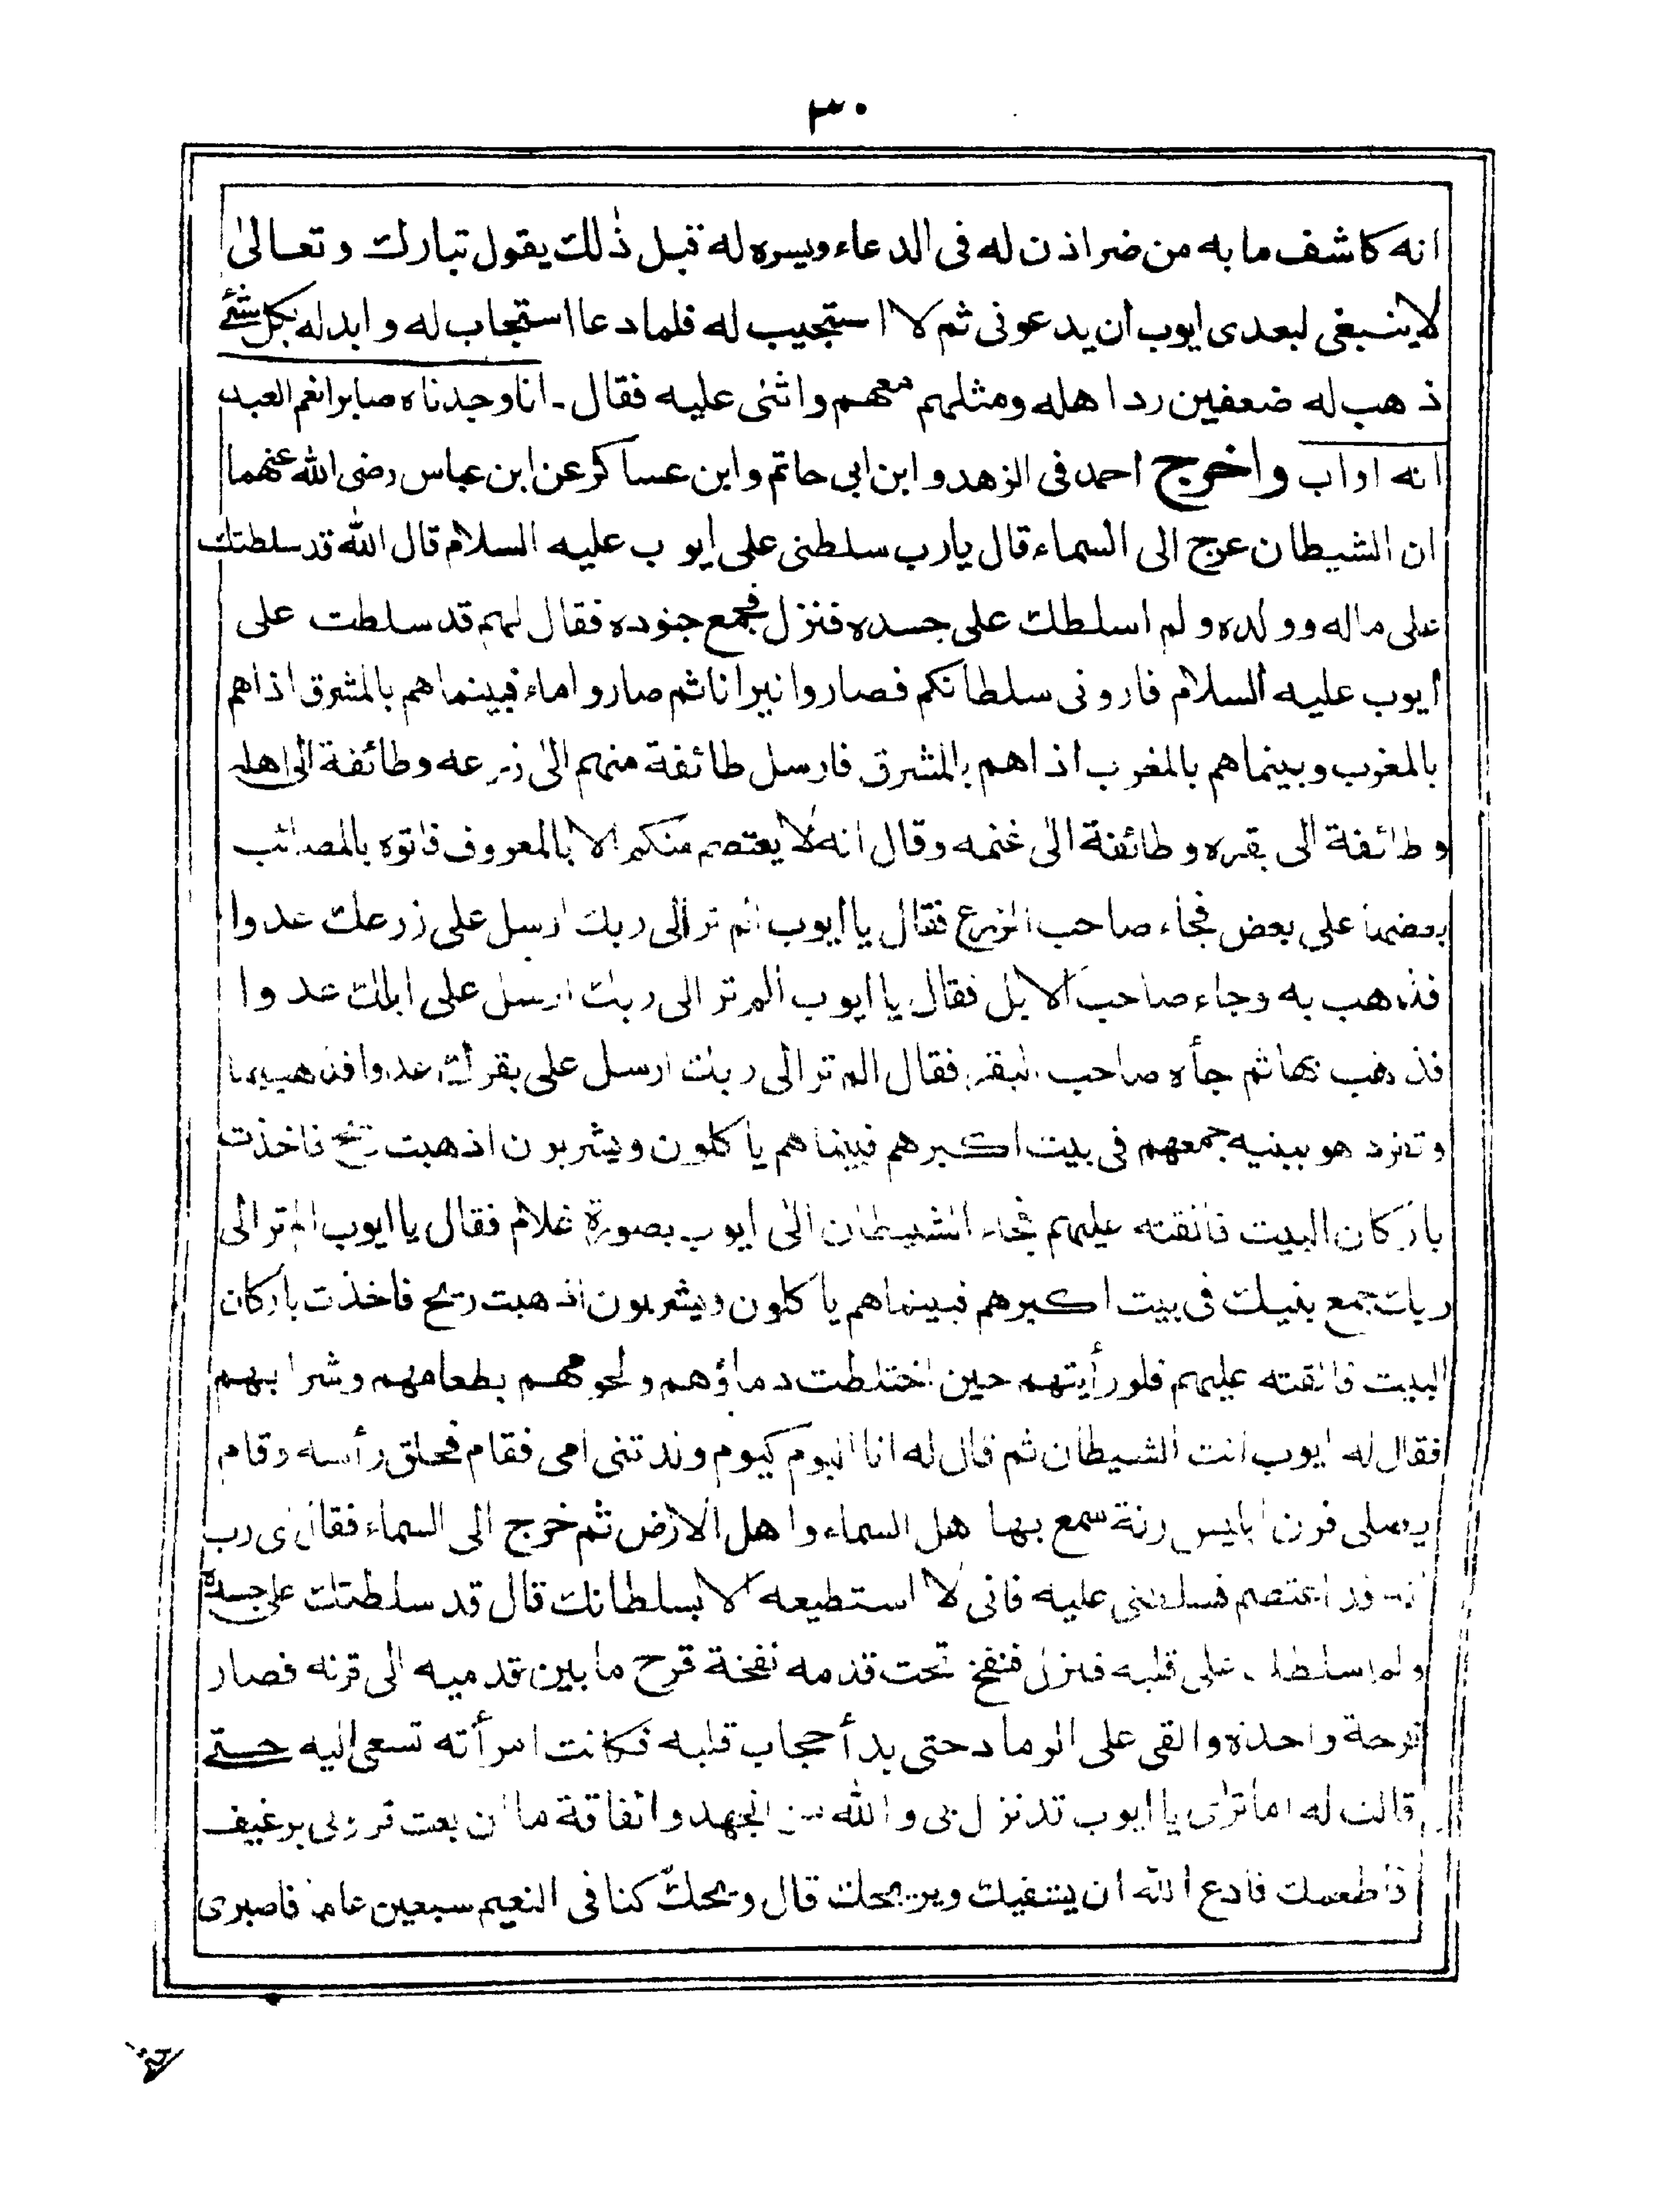 ٣٠
انه كاشف ما به من ضر اذن له فى الدعاء ويسره له قبل ذٰلك يقول تبارك وتعالىٰ
لاينبغى لبعدى ايوب أن يدعونى ثم لا استجيب له فلما دعا استجاب له وابدله بكل شئ
ذهب له ضعفين رد اهله ومثلهم معهم واثنى عليه فقال ـ انا وجدناه صابرا نعم العبد
انه اواب واخرج احمد فى الزهد وابن ابى حاتم وابن عساكر عن ابن عباس رضى الله عنهما
ان الشيطان عرج الى السماء قال يارب سلطنى على ايوب عليه السلام قال الله قد سلطتك
على ماله وولده ولم اسلطك على جسده فنزل فجمع جنوده فقال لهم قد سلطت على
ايوب عليه السلام فارونى سلطانكم فصاروا نيرانا ثم صاروا ماء فبينما هم بالمشرق اذا هم
بالمغرب وبينما هم بالمغرب اذا هم بالمشرق فارسل طائفة منهم الى زرعه وطائفة الى اهله
وطائفة الى بقره وطائفة الى غنمه وقال انه لا يعتصم منكم الا بالمعروف فاتوه بالمصائب
بعضها على بعض فجاء صاحب الزرع فقال يا ايوب الم تر الى ربك ارسل على زرعك عدوا
فذهب به وجاء صاحب الابل فقال يا ايوب الم تر الى ربك ارسل على ابلك عدوا
فذهب بها ثم جأه صاحب البقر فقال الم تر الى ربك ارسل على بقرك عدوا فذهب بها
وتفرد هو ببنيه جمعهم فى بيت اكبرهم فبينما هم ياكلون ويشربون اذ هبت ريح فاخذت
باركان البيت فالقته عليهم فجاء الشيطان الى ايوب بصورة غلام فقال يا ايوب الم تر الى
ربك جمع بنيك فى بيت اكبرهم فبينما هم ياكلون ويشربون اذ هبت ريح فاخذت باركان
البيت فالقته عليهم فلو رأيتهم حين اختلطت دماؤهم ولحومهم بطعامهم وشرابهم
فقال له ايوب انت الشيطان ثم قال له انا اليوم كيوم ولدتنى امى فقام فحلق رأسه وقام
يصلى فرن ابليس رنة سمع بها هل السماء واهل الارض ثم خرج الى السماء فقال اى رب
انه قد اعتصم فسلطنى عليه فانى لا استطيعه الا بسلطانك قال قد سلطتك على جسده
ولم اسلطك على قلبه فنزل فنفخ تحت قدمه نفخة قرح ما بين قدميه الى قرنه فصار
قرحة واحدة والقى على الرماد حتى بدأ حجاب قلبه فكانت امرأته تسعى اليه حتى
قالت له اما ترى يا ايوب تد نزل بى والله من الجهد والفاقة ما ان بعت قرونى برغيف
فاطعمك فادع الله ان يشفيك ويريحك قال ويحك كنا فى النعيم سبعين عاما فاصبرى